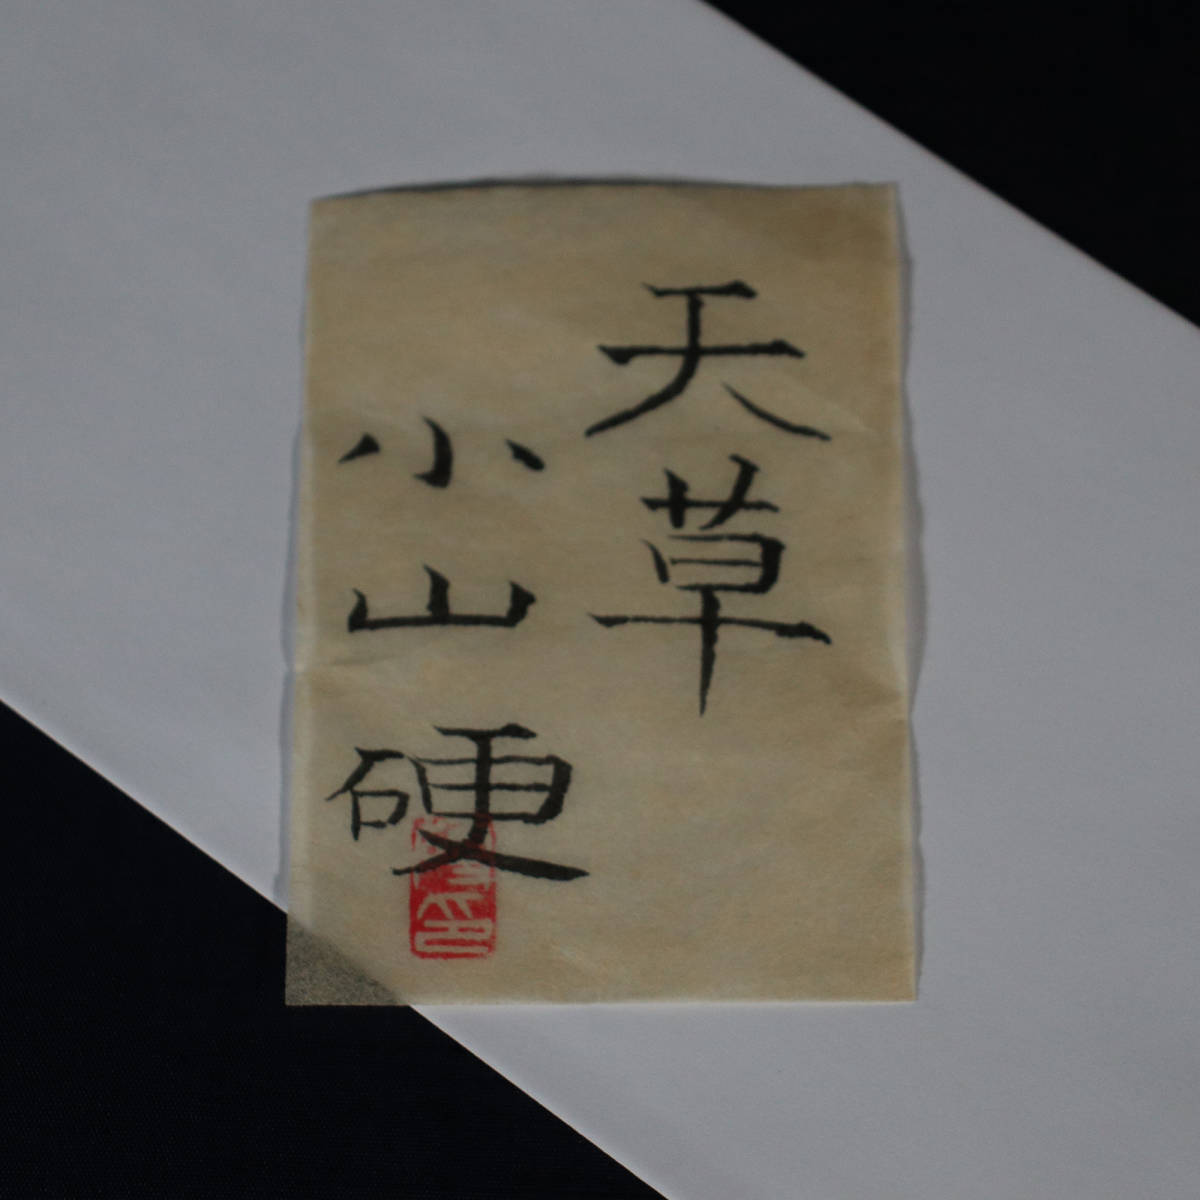 天草
小山硬